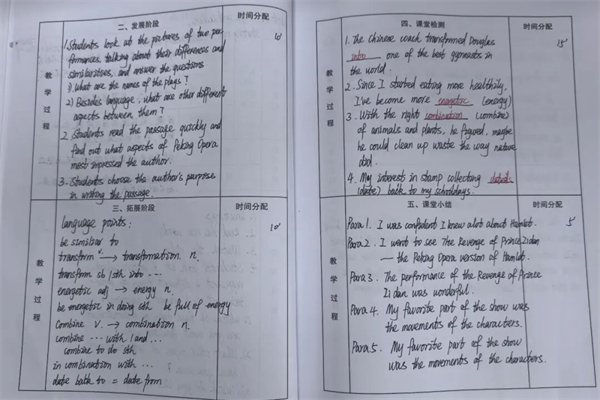 二、发展阶段
时间分配
教学过程
1. Students look at the pictures of two per-
formances, talking about their differences and
similarities, and answer the questions
1) What are the names of the plays?
2) Besides language, what are other different
aspects between them?
2. Students read the passage quickly and
find out what aspects of Peking Opera
most impressed the author.
3. Students choose the author's purpose
in writing the passage
10'
三、拓展阶段
时间分配
教学过程
language points:
be similar to
transform v. → transformation n.
transform sb/sth into ...
energetic adj → energy n.
be energetic in doing sth be full of energy
Combine v. → combination n.
combine ... with / and ...
combine to do sth
in combination with ...
date back to = date from
10'
四、课堂检测
时间分配
教学过程
1. The Chinese coach transformed Douglas
into one of the best gymnasts in
the world.
2. Since I started eating more healthily,
I've become more energetic (energy)
3. With the right combination (combine)
of animals and plants, he figured, maybe
he could clean up waste the way nature
did.
4. My interests in stamp collecting
(date) back to my schooldays.
15'
五、课堂小结
时间分配
教学过程
Para 1. I was confident I knew alot about Hamlet.
Para 2. I went to see The Revenge of Prince Zidan
— the Peking Opera version of Hamlet.
Para 3. The performance of the Revenge of Prince
Zi dan was wonderful.
Para 4. My favorite part of the show was
the movements of the characters.
Para 5. My favorite part of the show
was the movements of the characters.
5'